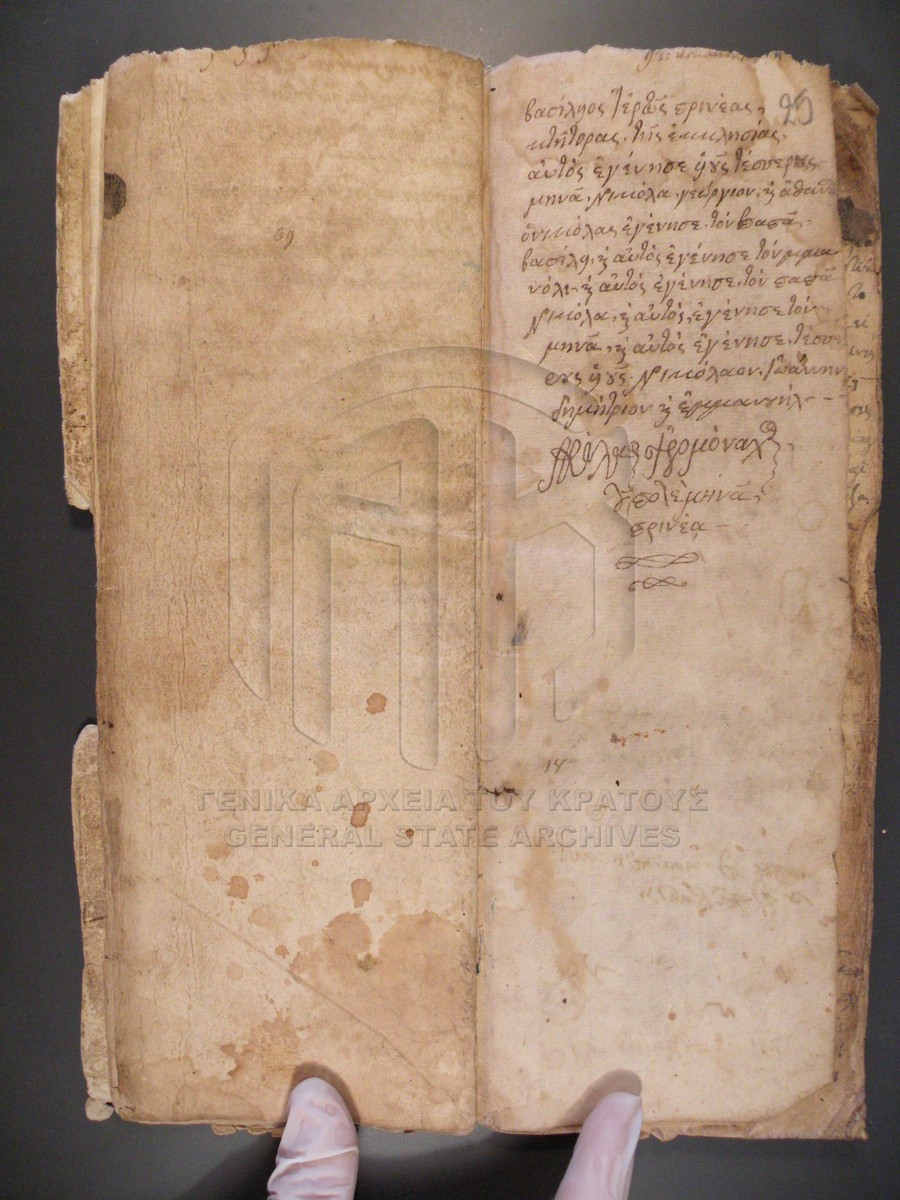 69
29
βασίληος ἱερεὺς πρινέας,
κτήτορας, τῆς ἐκκλησίας,
αὐτὸς ἐγέννησε ὑοὺς τέσσερους
μηνᾶ, Νικόλα, γεώργιον, κ ἀθαν
ὁ νικόλας ἐγένησε, τὸν παπᾶ,
βασίλη, κ αὐτὸς ἐγένησε τὸν μανα
νόλι, κ αὐτὸς ἐγένησε, τὸν παπᾶ
Νικόλα, κ αὐτὸς, ἐγένησε τὸν
μηνᾶ, κ αὐτὸς ἐγένησε, τέσσε
ρυς ὑοὺς Νικόλαον, Ἰωάννην
δημήτριον κ ἐμμανουὴλ
ἱερομόναχος
μηνᾶ
πρινέα
14
ΓΕΝΙΚΑ ΑΡΧΕΙΑ ΤΟΥ ΚΡΑΤΟΥΣ
GENERAL STATE ARCHIVES